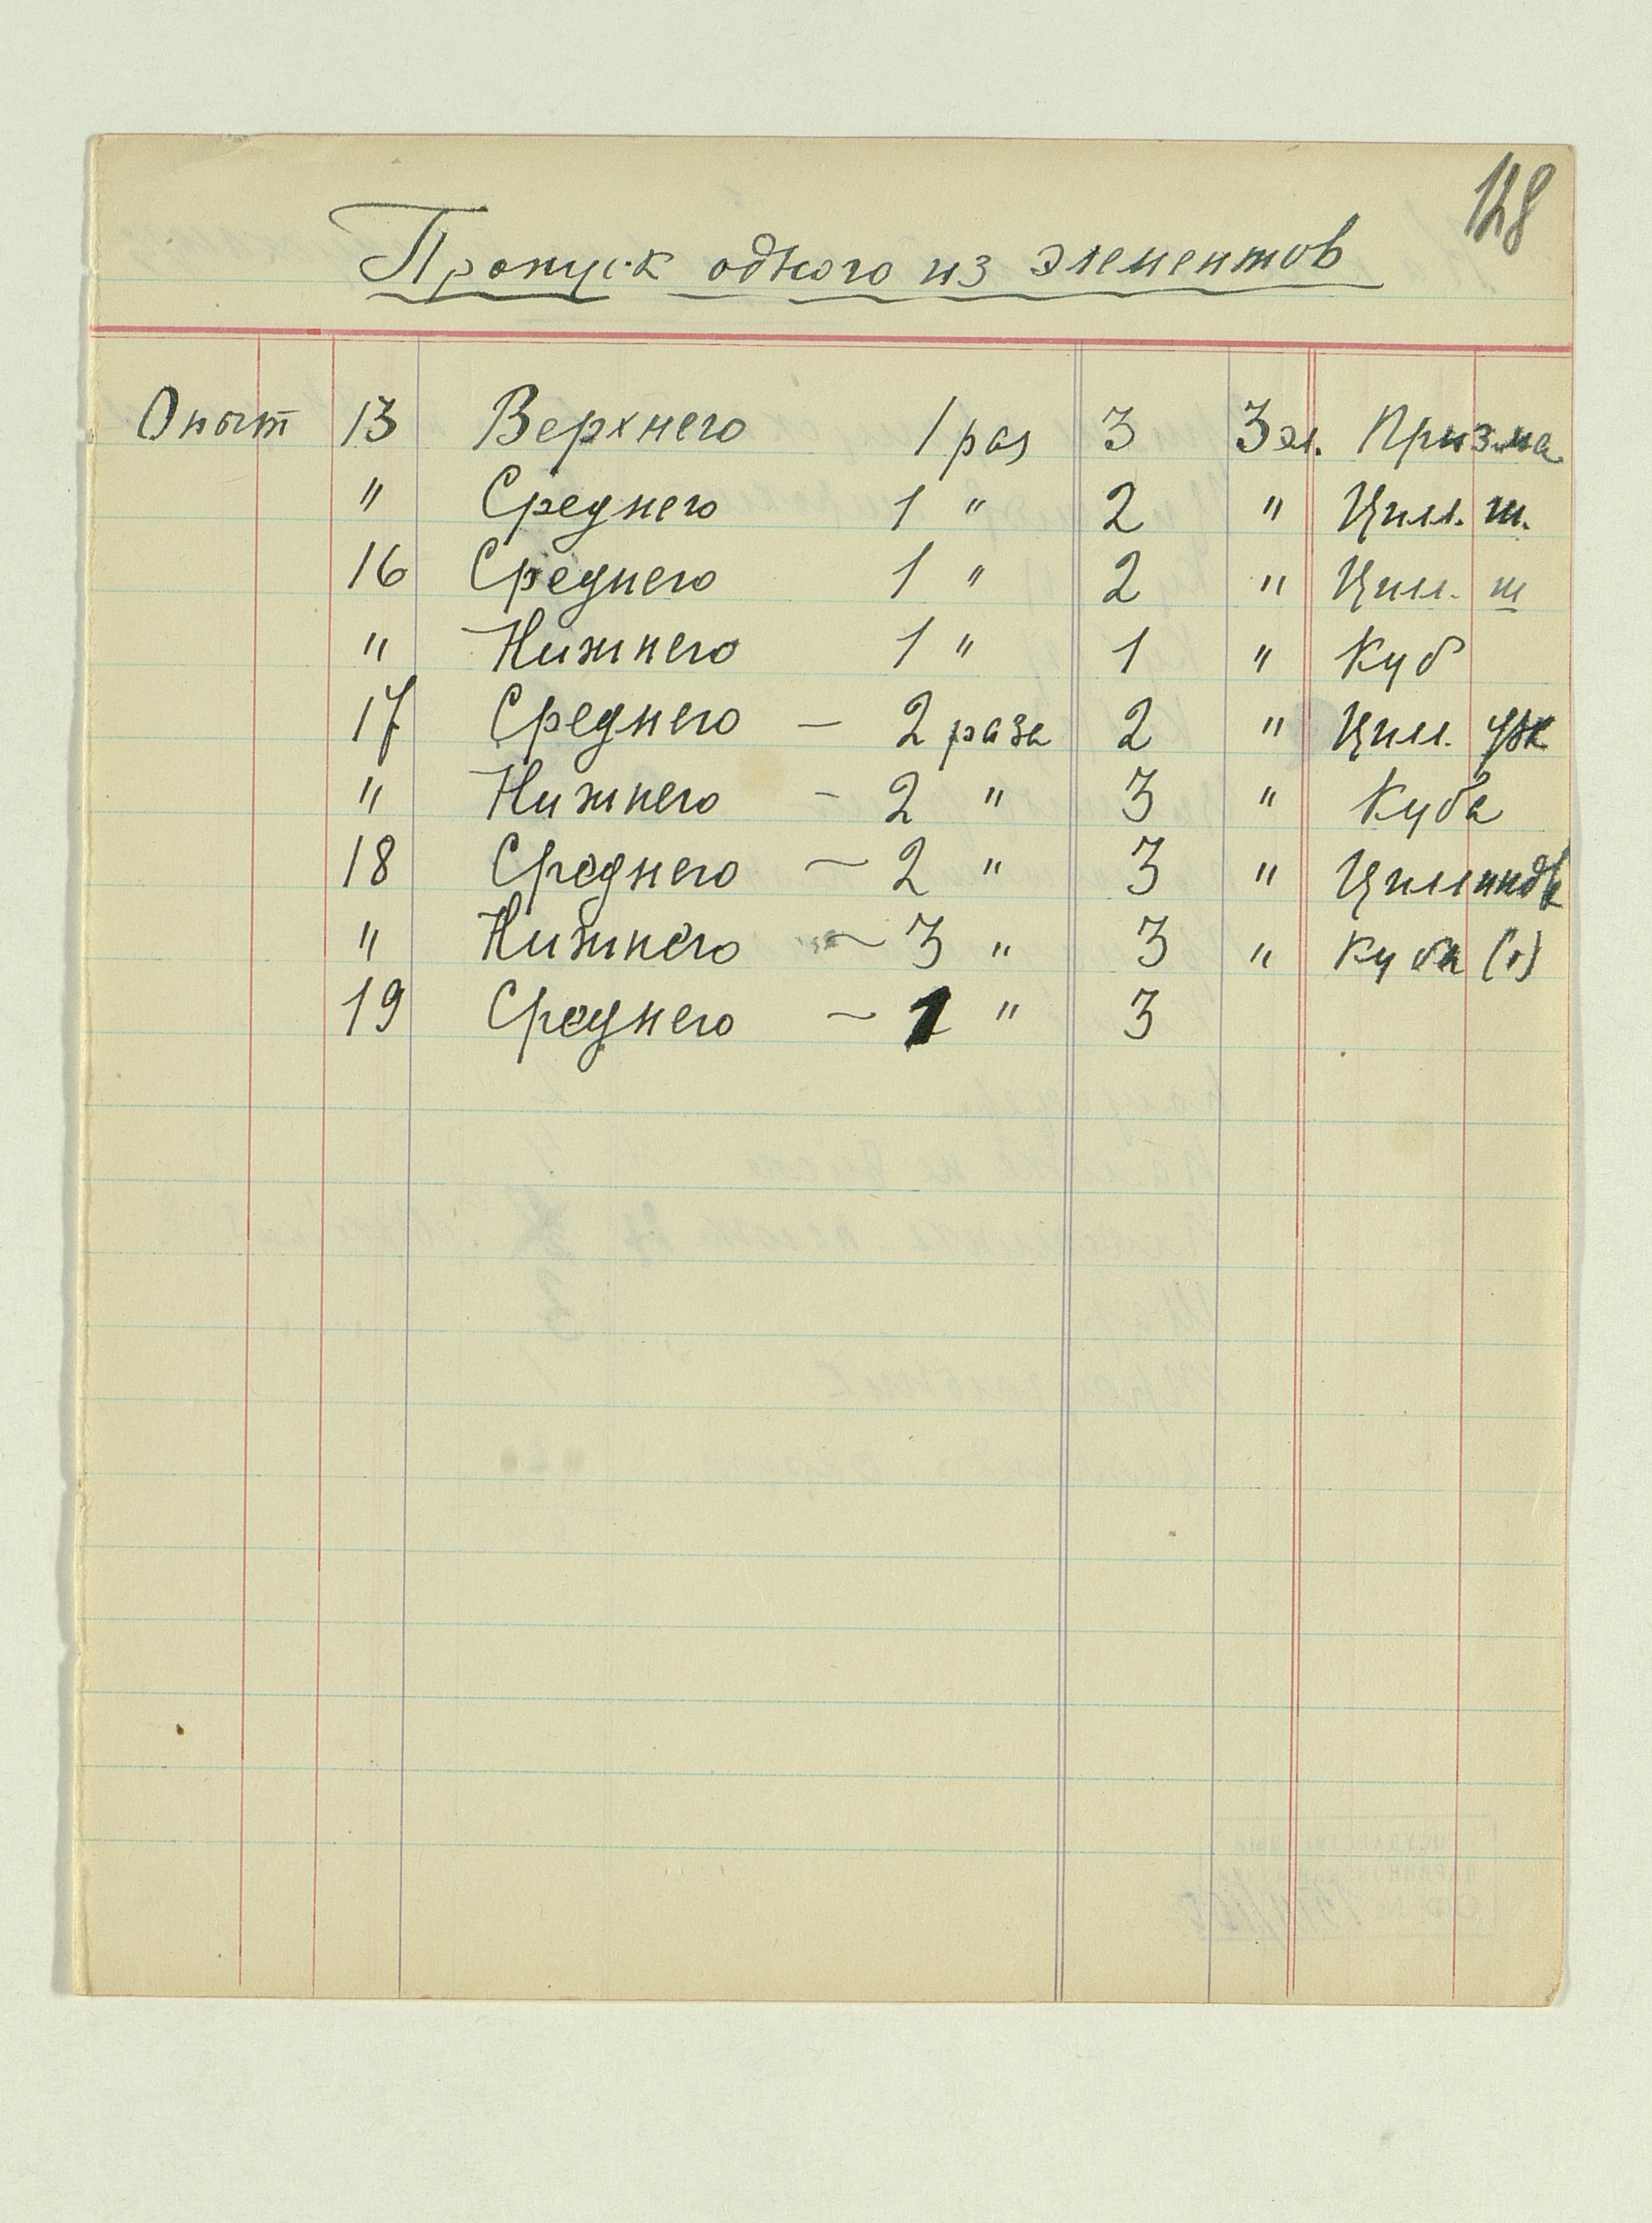 128
Пропуск одного из элементов
Опыт 13 Верхнего 1 раз 3 3 эл. Призма
" Среднего 1 " 2 " Цил. ш.
16 Среднего 1 " 2 " Цил. ш
" Нижнего 1 " 1 " Куб
17 Среднего — 2 раза 2 " Цил. уж
" Нижнего — 2 " 3 " Куба
18 Среднего — 2 " 3 " Цилиндр
" Нижнего — 3 " 3 " Куба (1)
19 Среднего — 1 " 3